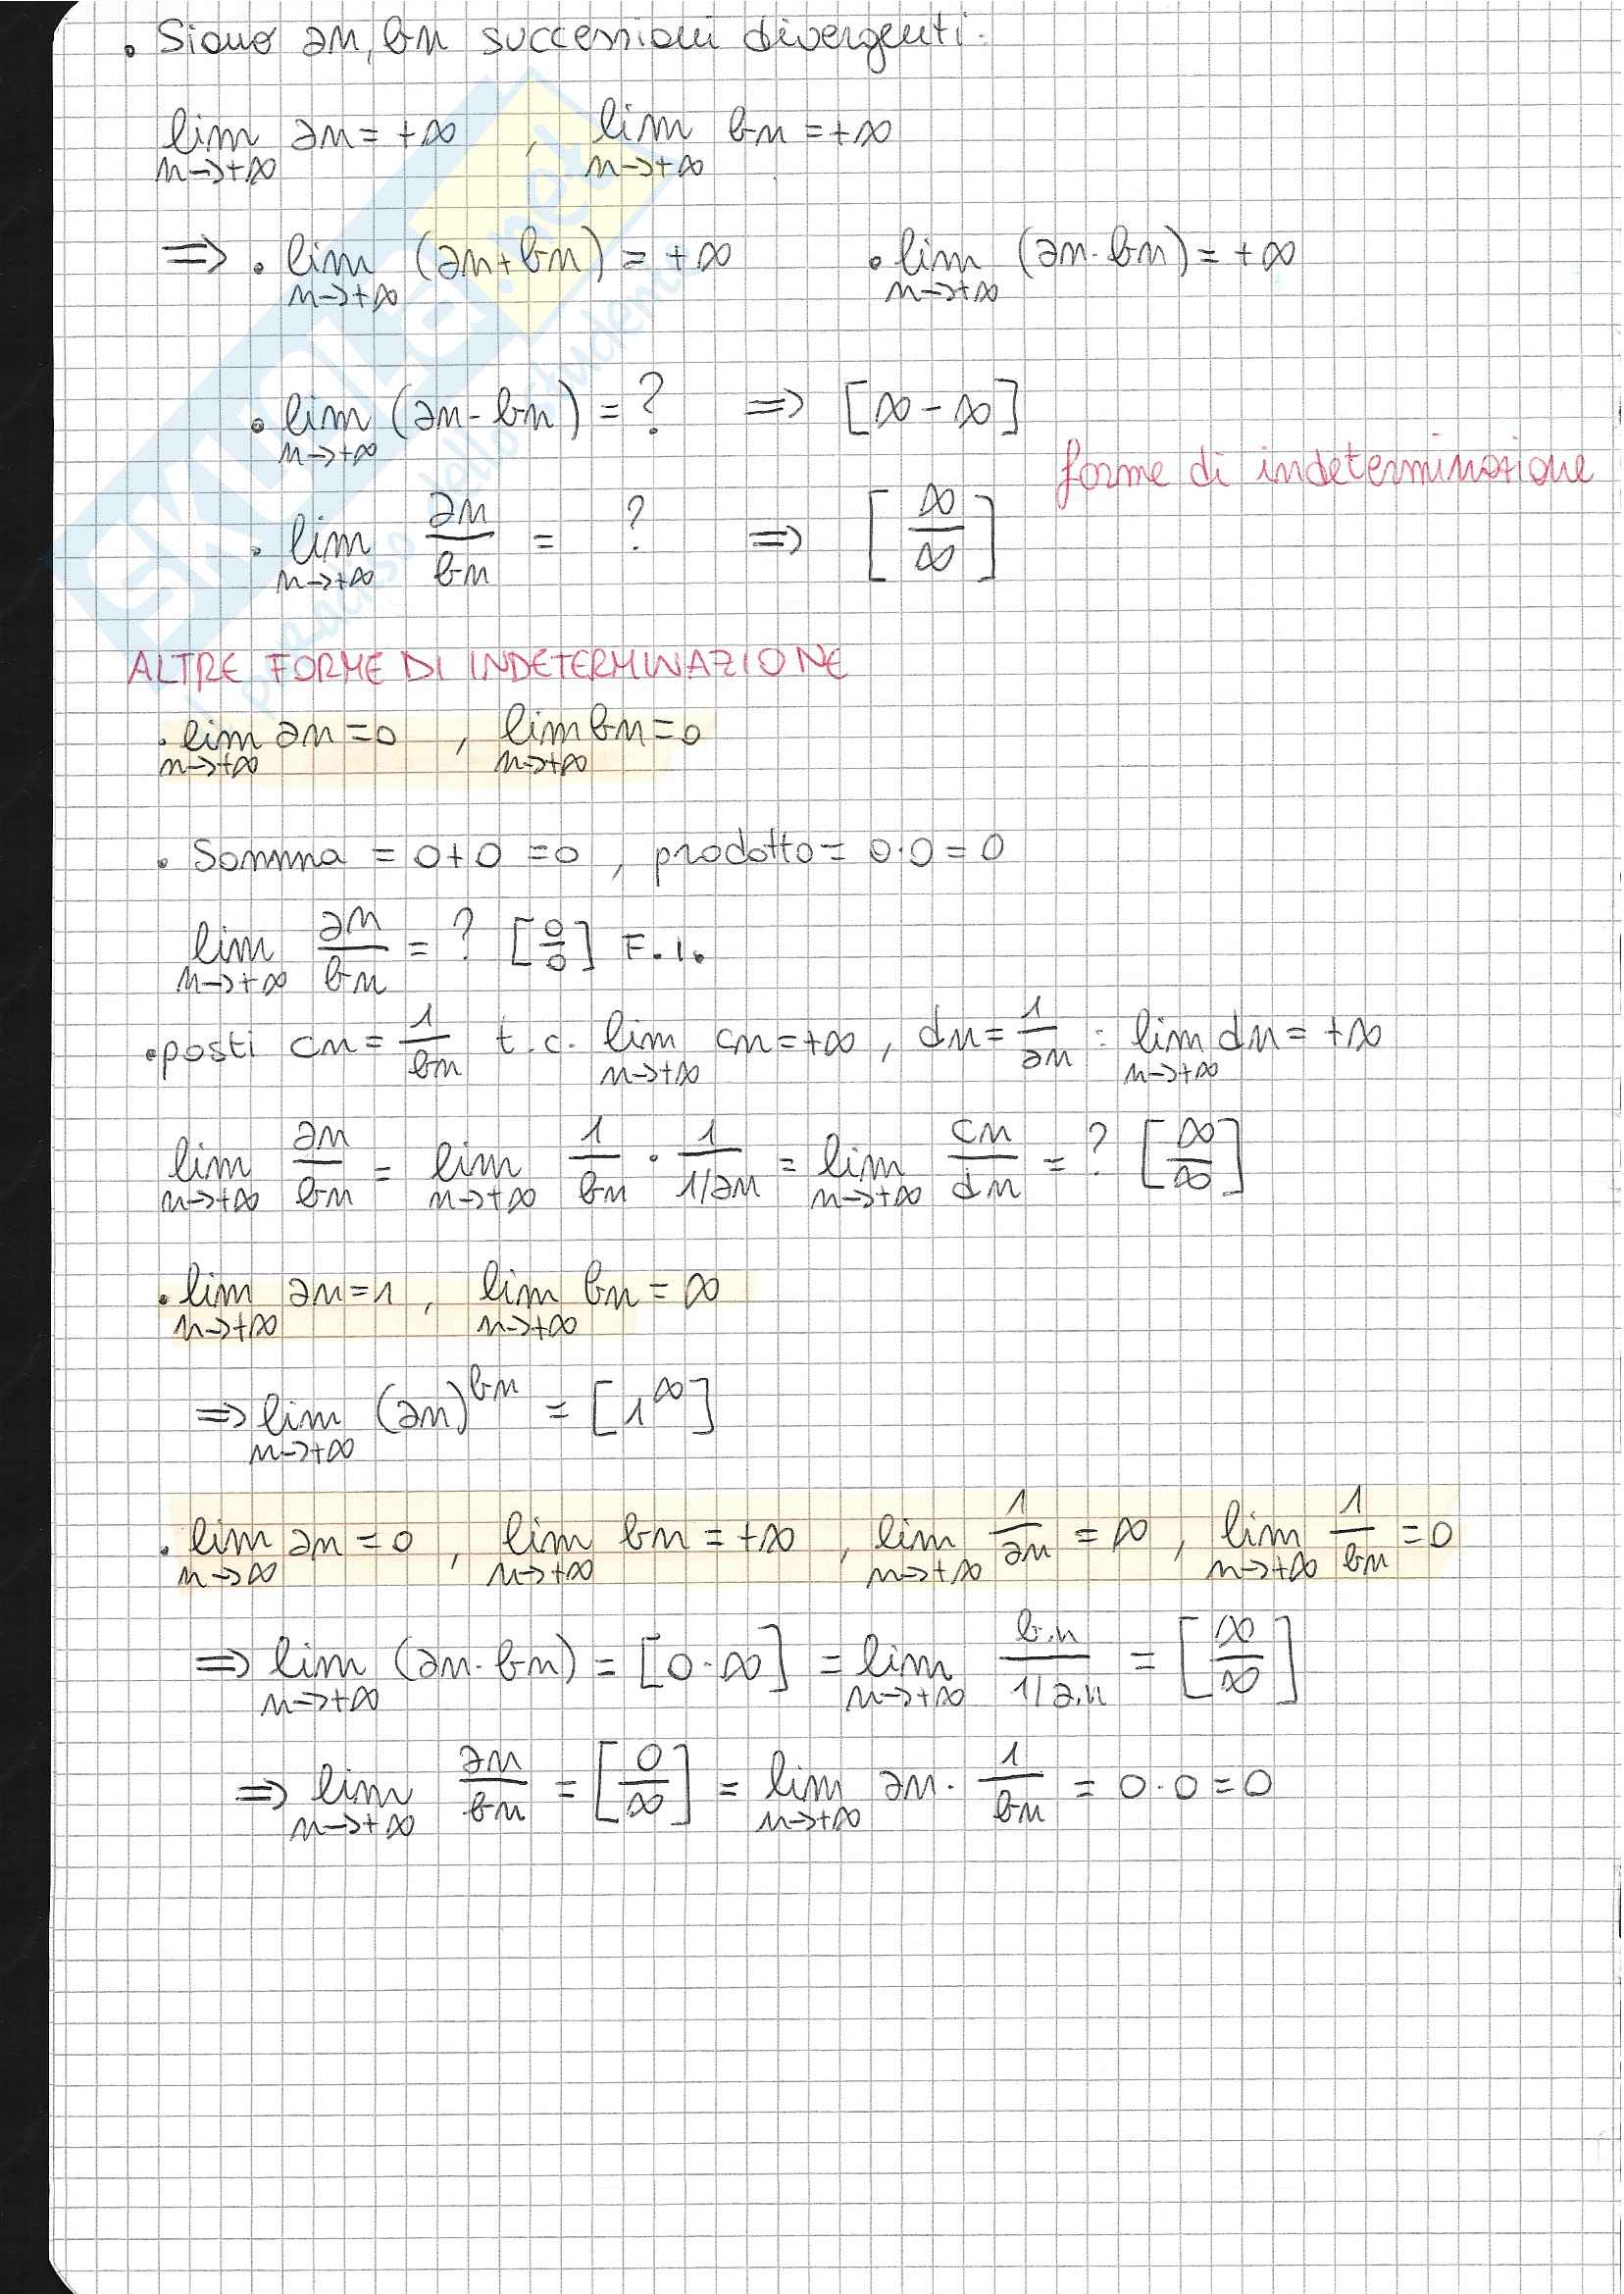 • Siano an, bn successioni divergenti.
lim n→+∞ an = +∞ , lim n→+∞ bn = +∞
⇒ • lim n→+∞ (an+bn) = +∞ • lim n→+∞ (an·bn) = +∞
• lim n→+∞ (an-bn) = ? ⇒ [∞-∞]
forme di indeterminazione
• lim n→+∞ an/bn = ? ⇒ [∞/∞]
ALTRE FORME DI INDETERMINAZIONE
• lim n→+∞ an=0 , lim n→+∞ bn=0
• Somma = 0+0 =0 , prodotto = 0·0 = 0
lim n→+∞ an/bn = ? [0/0] F.I.
• posti cn = 1/bn t.c. lim n→+∞ cn = +∞ , dn = 1/an : lim n→+∞ dn = +∞
lim n→+∞ an/bn = lim n→+∞ 1/bn · 1/(1/an) = lim n→+∞ cn/dn = ? [∞/∞]
• lim n→+∞ an=1 , lim n→+∞ bn = ∞
⇒ lim n→+∞ (an)^bn = [1^∞]
• lim n→∞ an = 0 , lim n→+∞ bn = +∞ , lim n→+∞ 1/an = ∞ , lim n→+∞ 1/bn = 0
⇒ lim n→+∞ (an·bn) = [0·∞] = lim n→+∞ bn/(1/an) = [∞/∞]
⇒ lim n→+∞ an/bn = [0/∞] = lim n→+∞ an · 1/bn = 0·0 = 0
SKUOLA.net
il paradiso dello studente